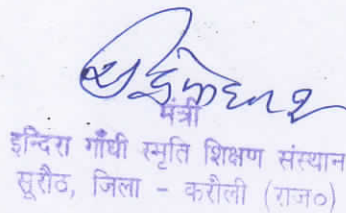 मंत्री
इन्दिरा गाँधी स्मृति शिक्षण संस्थान
सूरौठ, जिला - करौली (राज०)